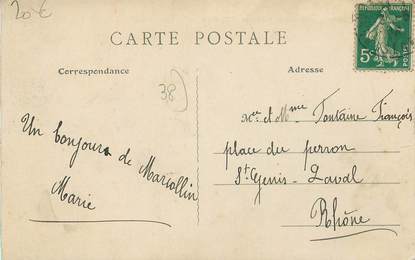 20 €
CARTE POSTALE
Correspondance
Adresse
38
5c
POSTES
Un bonjour de Marcollin
Marie
Mr et Mme Fontaine François
place du perron
St Genis-Laval
Rhône